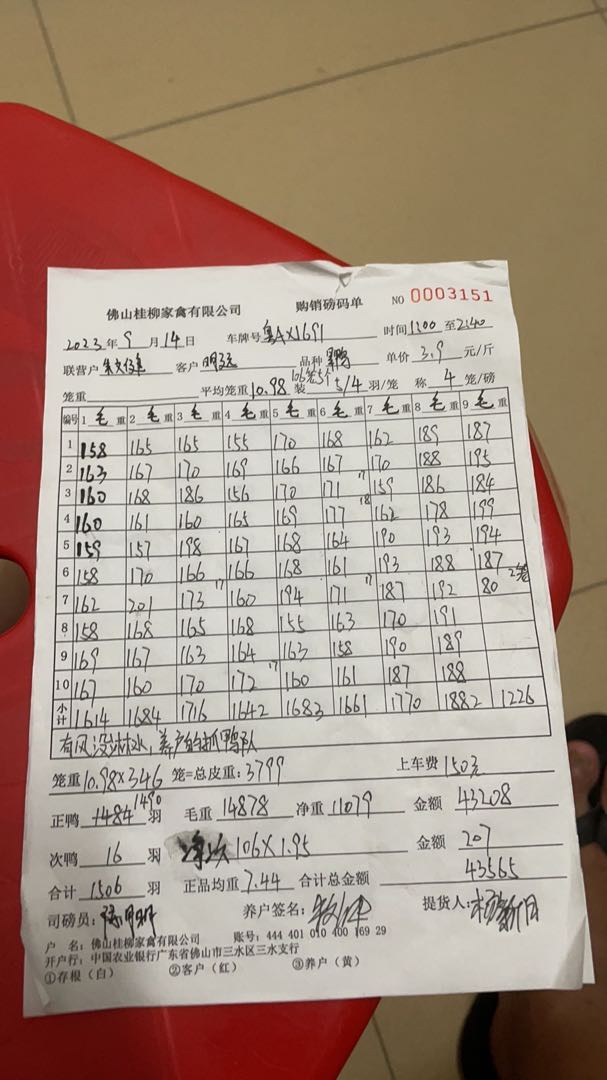 佛山桂柳家禽有限公司 购销磅码单 NO 0003151
2023年 9 月 14 日 车牌号 粤AX1691 时间 1200 至 2:40
联营户 客户 品种 单价 3.9 元/斤
笼重 平均笼重 10.98 装 5/4 羽/笼 称 4 笼/磅
编号 1 毛 重 2 毛 重 3 毛 重 4 毛 重 5 毛 重 6 毛 重 7 毛 重 8 毛 重 9 毛 重
1 158 165 165 155 170 168 162 189 187
2 163 167 170 169 166 167 170 188 195
3 160 168 186 156 170 171 17 159 186 184
4 160 161 160 165 169 177 18 162 178 199
5 159 157 198 167 168 164 190 193 194
6 158 170 166 166 168 161 193 188 187
7 162 201 173 17 160 194 171 17 187 192 80 2笼
8 158 168 165 168 155 163 170 191
9 169 167 163 164 163 158 190 189
10 167 160 170 172 17 160 161 187 188
小计 1614 1684 1716 1642 1683 1661 1770 1882 1226
有风没淋水,养户自抓鸭队
笼重 10.98×346 笼=总皮重: 3799 上车费 150元
正鸭 1484 1490 羽 毛重 14878 净重 11079 金额 43208
次鸭 16 羽 106×1.95 金额 207
合计 1506 羽 正品均重 7.44 合计总金额 43565
司磅员: 养户签名: 提货人:
户 名: 佛山桂柳家禽有限公司 账号: 444 401 010 400 169 29
开户行: 中国农业银行广东省佛山市三水区三水支行
①存根(白) ②客户(红) ③养户(黄)